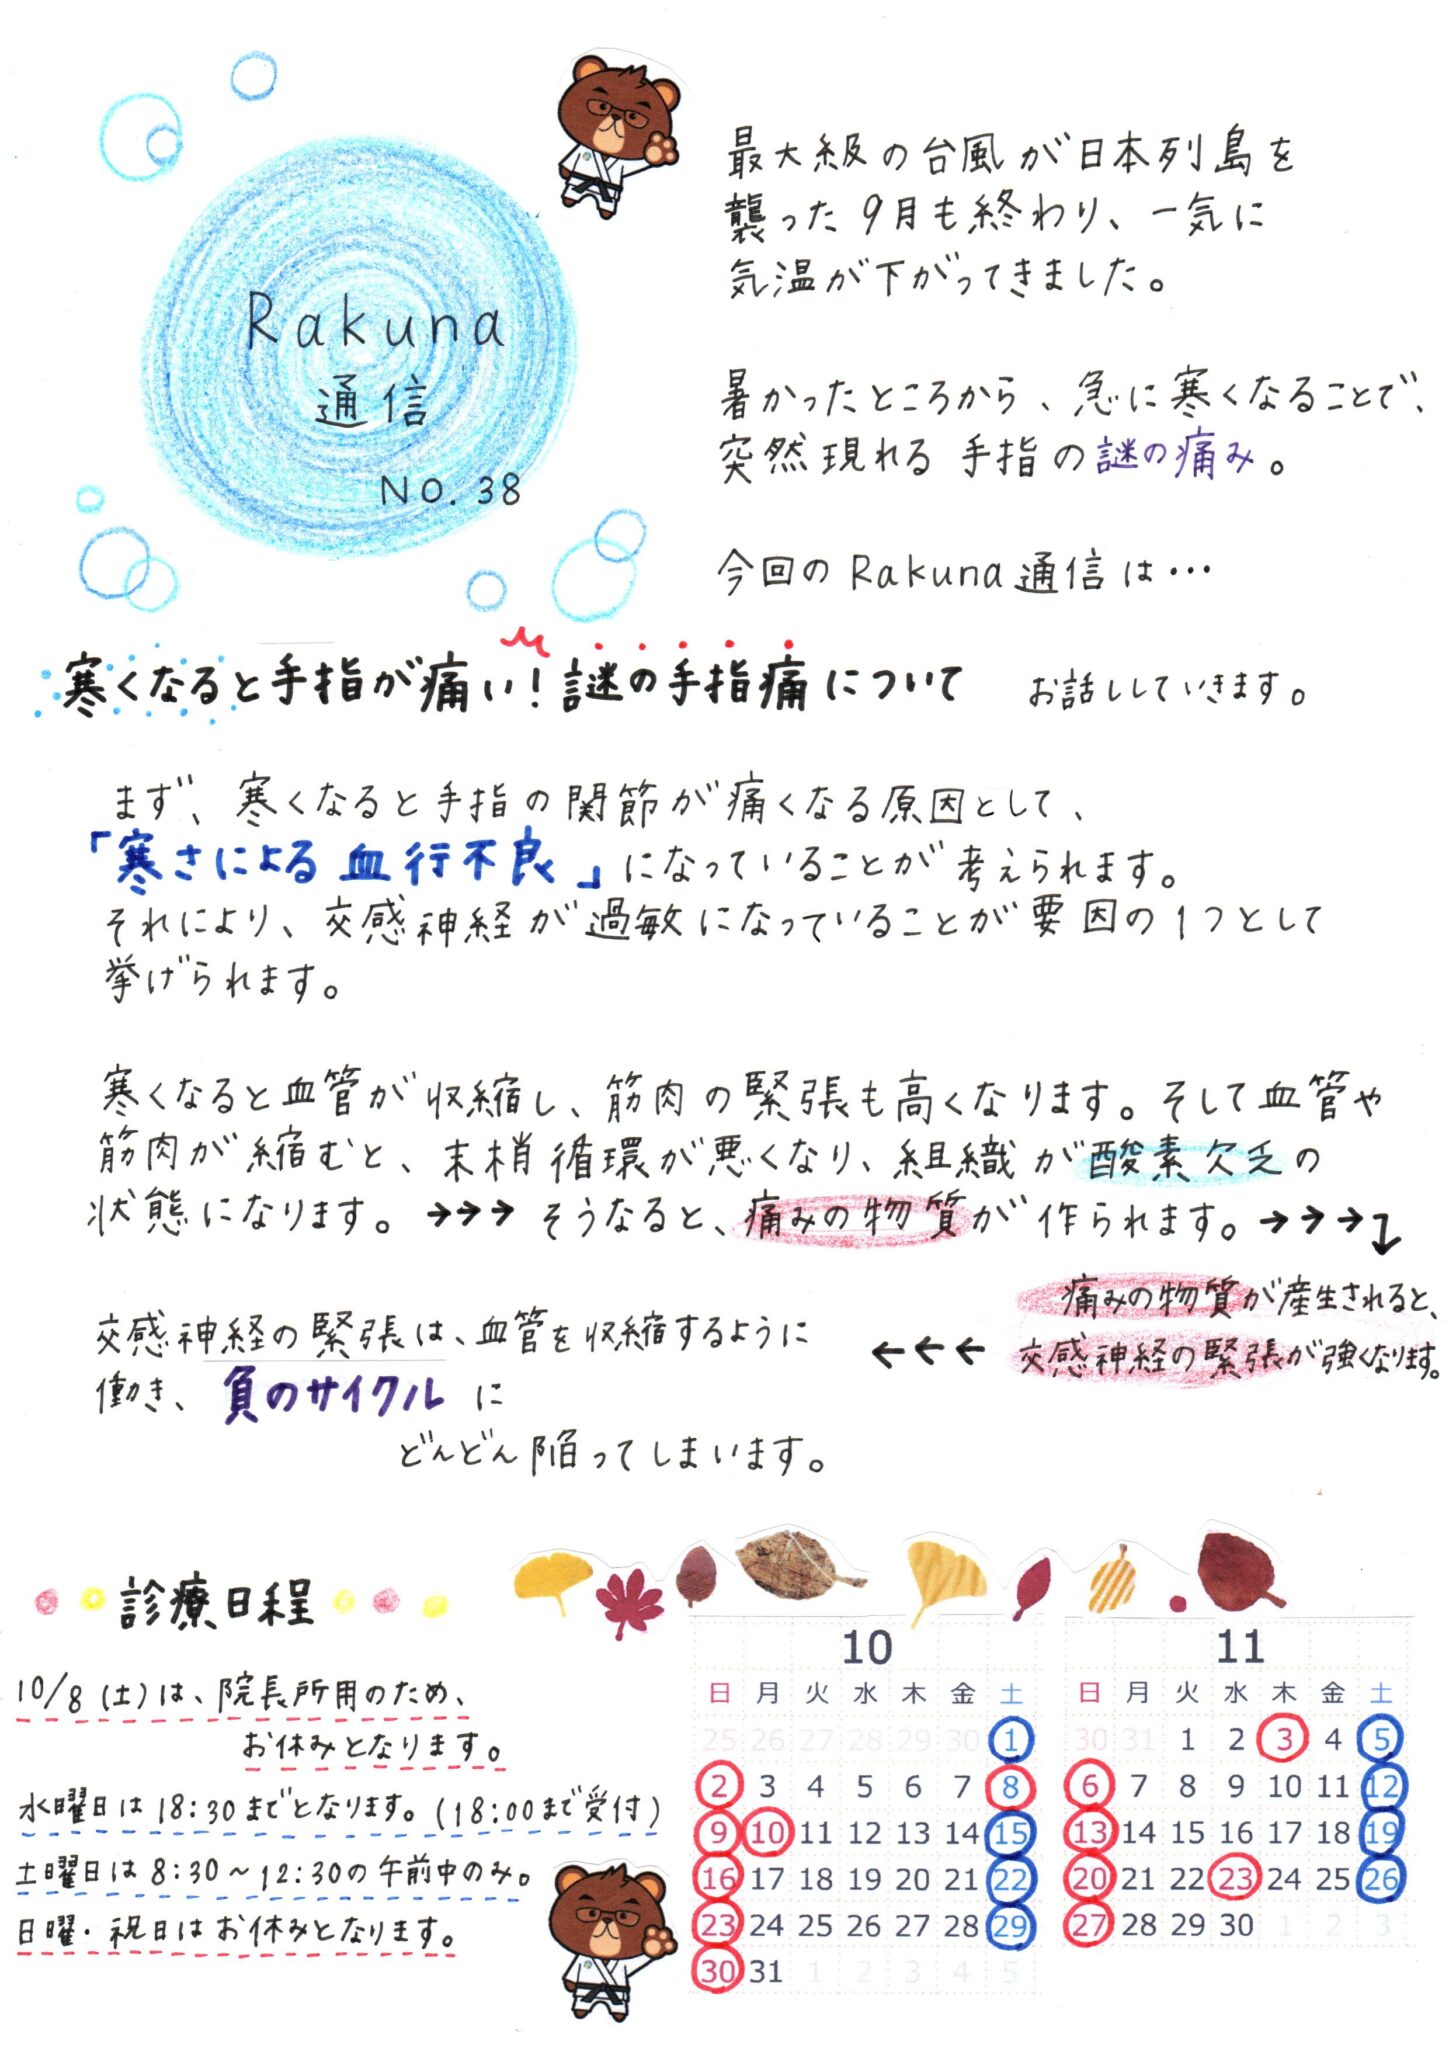 Rakuna
通信
NO.38
最大級の台風が日本列島を
襲った9月も終わり、一気に
気温が下がってきました。
暑かったところから、急に寒くなることで、
突然現れる手指の謎の痛み。
今回のRakuna通信は…
寒くなると手指が痛い!謎の手指痛について お話ししていきます。
まず、寒くなると手指の関節が痛くなる原因として、
「寒さによる血行不良」になっていることが考えられます。
それにより、交感神経が過敏になっていることが要因の1つとして
挙げられます。
寒くなると血管が収縮し、筋肉の緊張も高くなります。そして血管や
筋肉が縮むと、末梢循環が悪くなり、組織が酸素欠乏の
状態になります。→→→そうなると、痛みの物質が作られます。→→→↴
痛みの物質が産生されると、
交感神経の緊張が強くなります。
←←←
交感神経の緊張は、血管を収縮するように
働き、負のサイクルに
どんどん陥ってしまいます。
診療日程
10/8(土)は、院長所用のため、
お休みとなります。
水曜日は18:30までとなります。(18:00まで受付)
土曜日は8:30~12:30の午前中のみ。
日曜・祝日はお休みとなります。
10
日 月 火 水 木 金 土
25 26 27 28 29 30 1
2 3 4 5 6 7 8
9 10 11 12 13 14 15
16 17 18 19 20 21 22
23 24 25 26 27 28 29
30 31 1 2 3 4 5
11
日 月 火 水 木 金 土
30 31 1 2 3 4 5
6 7 8 9 10 11 12
13 14 15 16 17 18 19
20 21 22 23 24 25 26
27 28 29 30 1 2 3